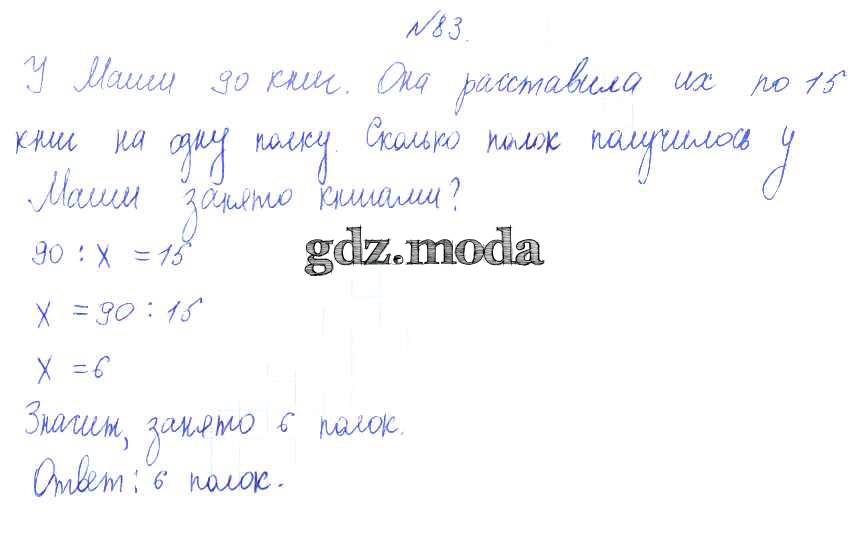 №83.
У Маши 90 книг. Она расставила их по 15
книг на одну полку. Сколько полок получилось у
Маши занято книгами?
gdz.moda
90 : х = 15
х = 90 : 15
х = 6
Значит, занято 6 полок.
Ответ: 6 полок.